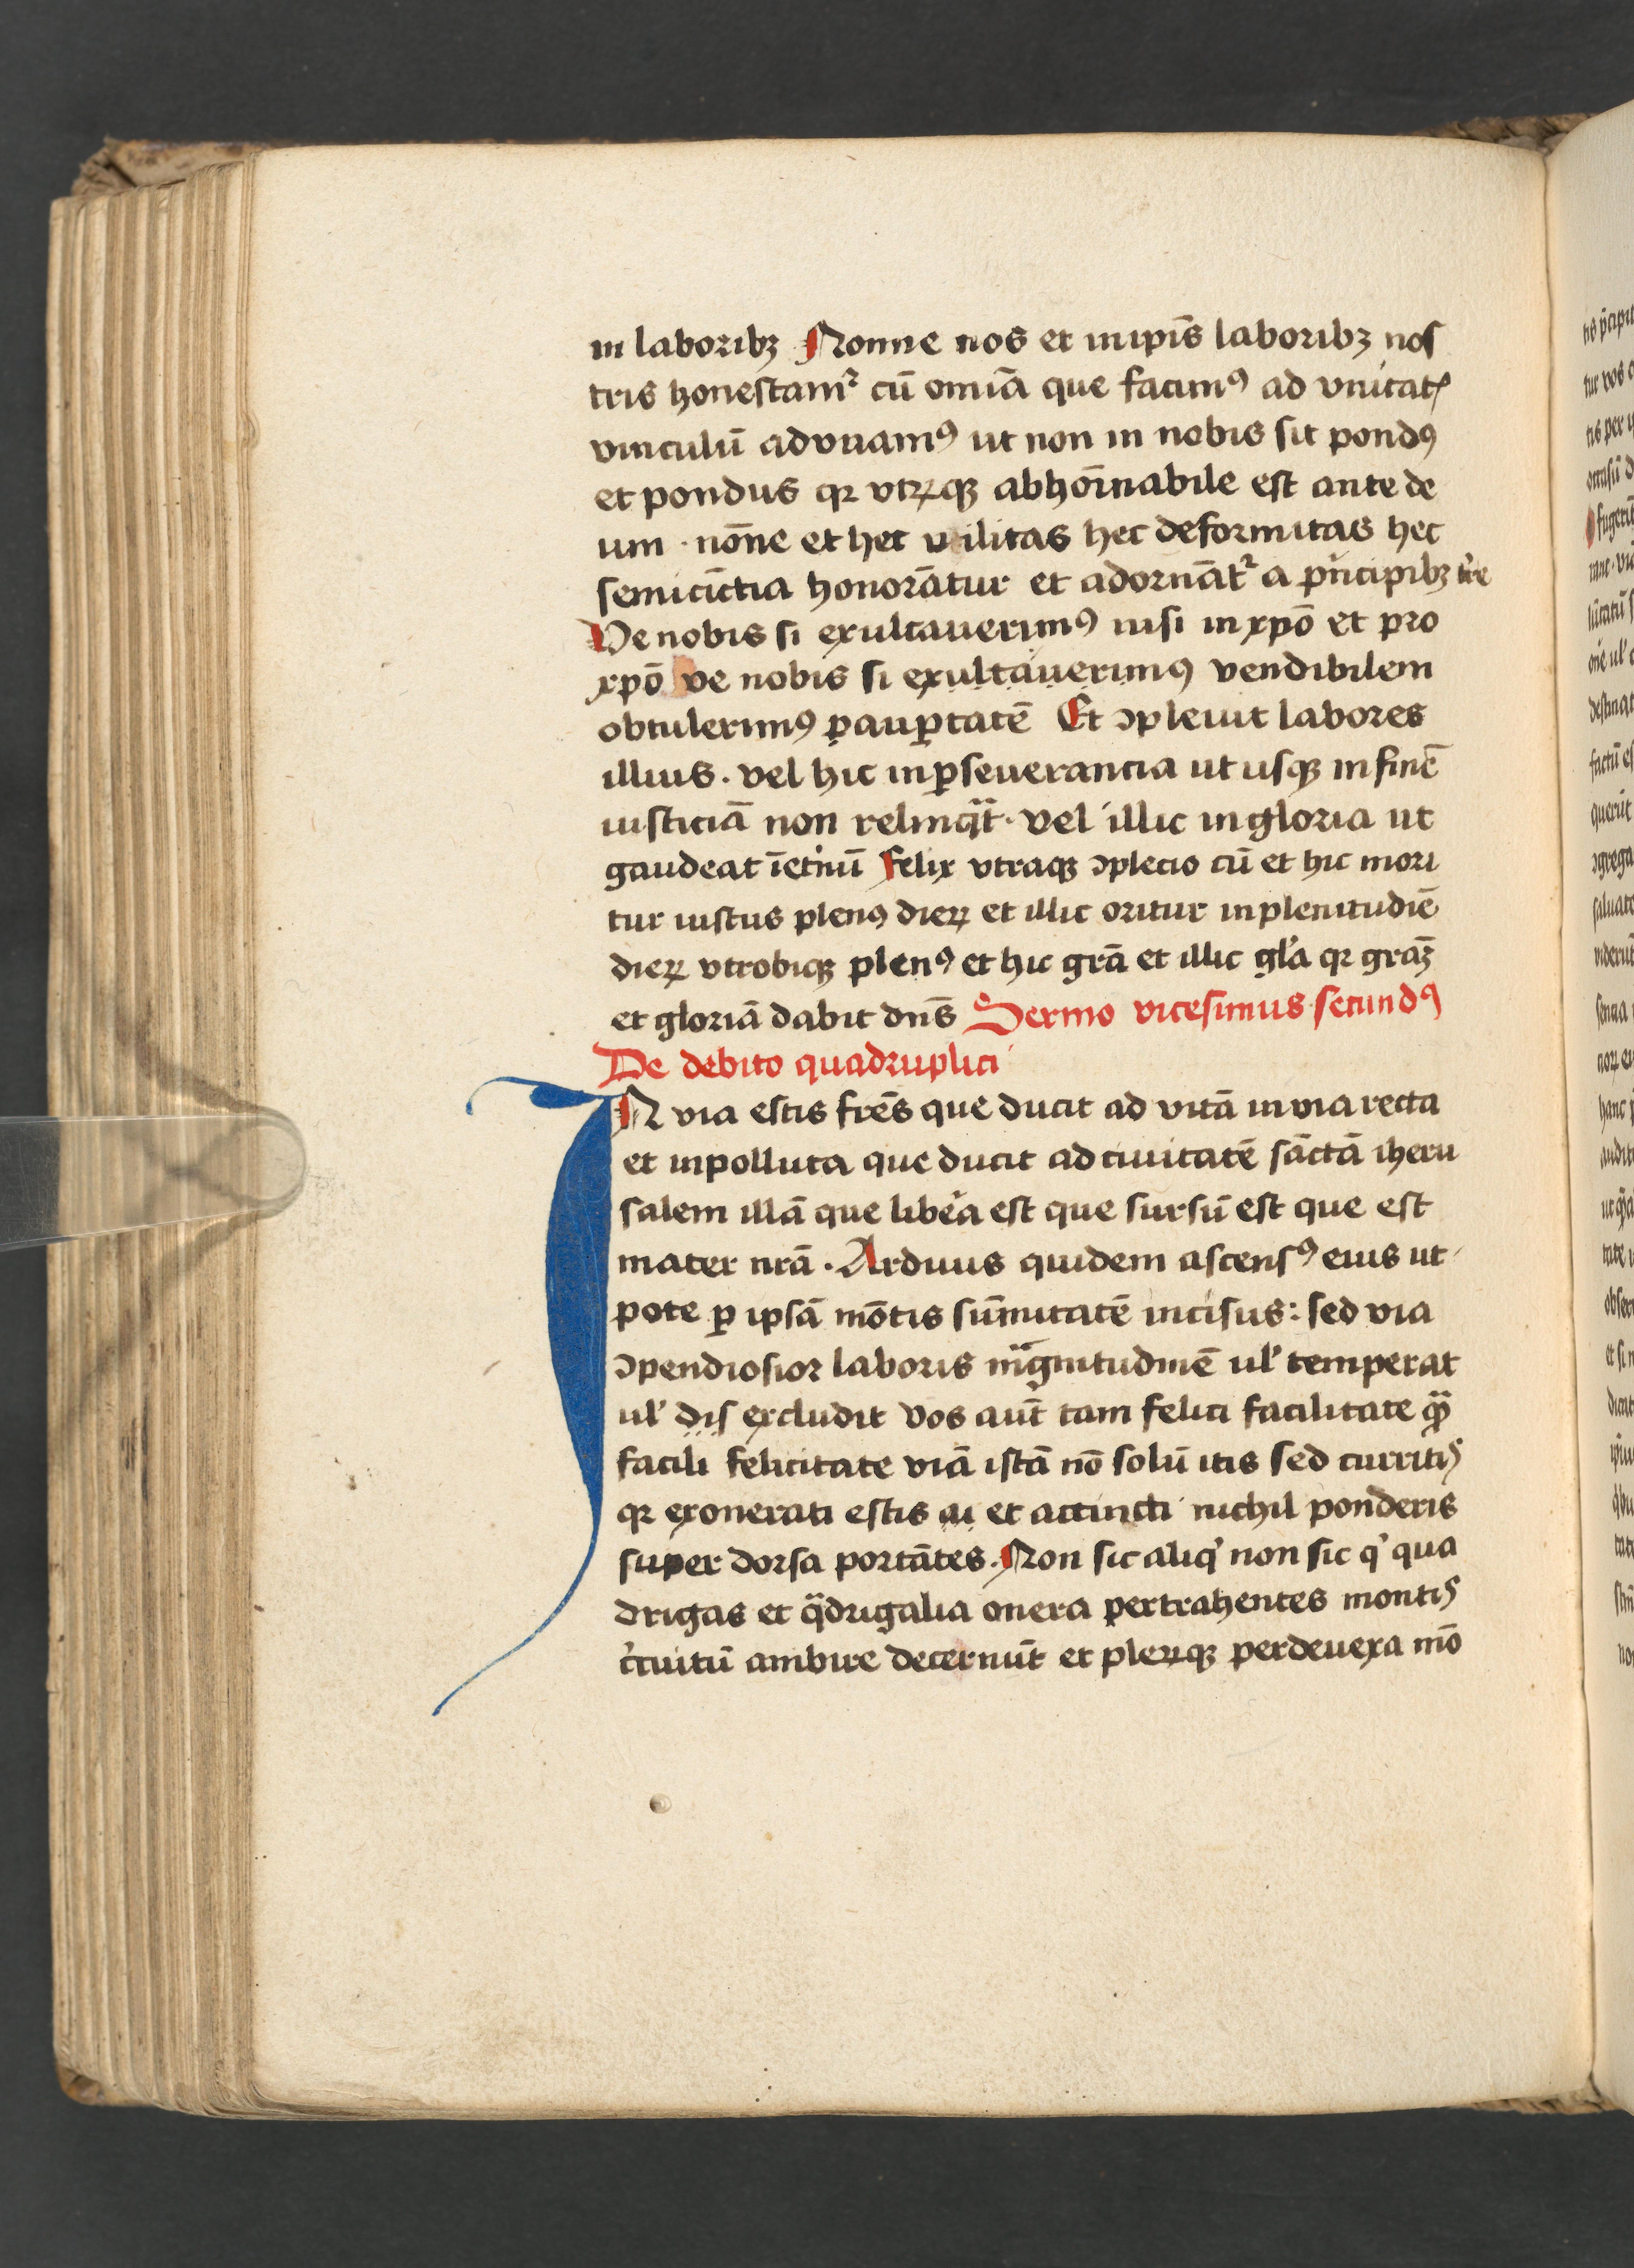 in laboribꝫ Nonne nos et in ip̄is laboribꝫ nos
tris honestamᷣ cū om̄ia que facimꝰ ad vnitatꝭ
vinculū advnamꝰ ut non in nobis sit pondꝰ
et pondus qꝛ vtrꝛqꝫ abhoīnabile est ante de
um · nōne et hec vilitas hec deformitas hec
semicīctia honorātur et adornāt᷑ a pͥncipibꝫ tr̄e
Ve nobis si exultauerimꝰ nisi in xp̄o et pro
xp̄o ve nobis si exultauerimꝰ vendibilem
obtulerimꝰ pauꝑtatē Et ↄpleuit labores
illius . vel hic in ꝑseuerancia ut usqꝫ in finē
iusticiā non relinqͣt · vel illic in gloria ut
gaudeat ī et̓nū Felix vtraqꝫ ↄplecio cū et hic mori
tur iustus plenꝰ dieꝝ et illic oritur in plenitudīe
dieꝝ vtrobiqꝫ plenꝰ et hic grā et illic gl̓a qꝛ grāꝫ
et gloriā dabit dn̄s Sermo vicesimus secundꝰ
De debito quadruplici
IN via estis fr̄es que ducit ad vitā in via recta
et inpolluta que ducit ad ciuitatē sāctā iheru
salem illā que lib̓era est que sursū est que est
mater nr̄a . Arduus quidem ascensꝰ eius ut
pote ꝑ ipsā mōtis sūmitatē incisus : sed via
ↄpendiosior laboris mͣgnitudinē ul̓ temperat
ul̓ dis excludit vos aut̄ tam felici facilitate qͣꝫ
facili felicitate viā istā nō solū itis sed curritꝭ
qꝛ exonerati estis ai et accincti nichil ponderis
super dorsa portātes . Non sic aliqͥ non sic qͥ qua
drigas et qͣdrigalia onera pertrahentes montꝭ
cͥcuitū ambire decernūt et pleriqꝫ per deuexa mō